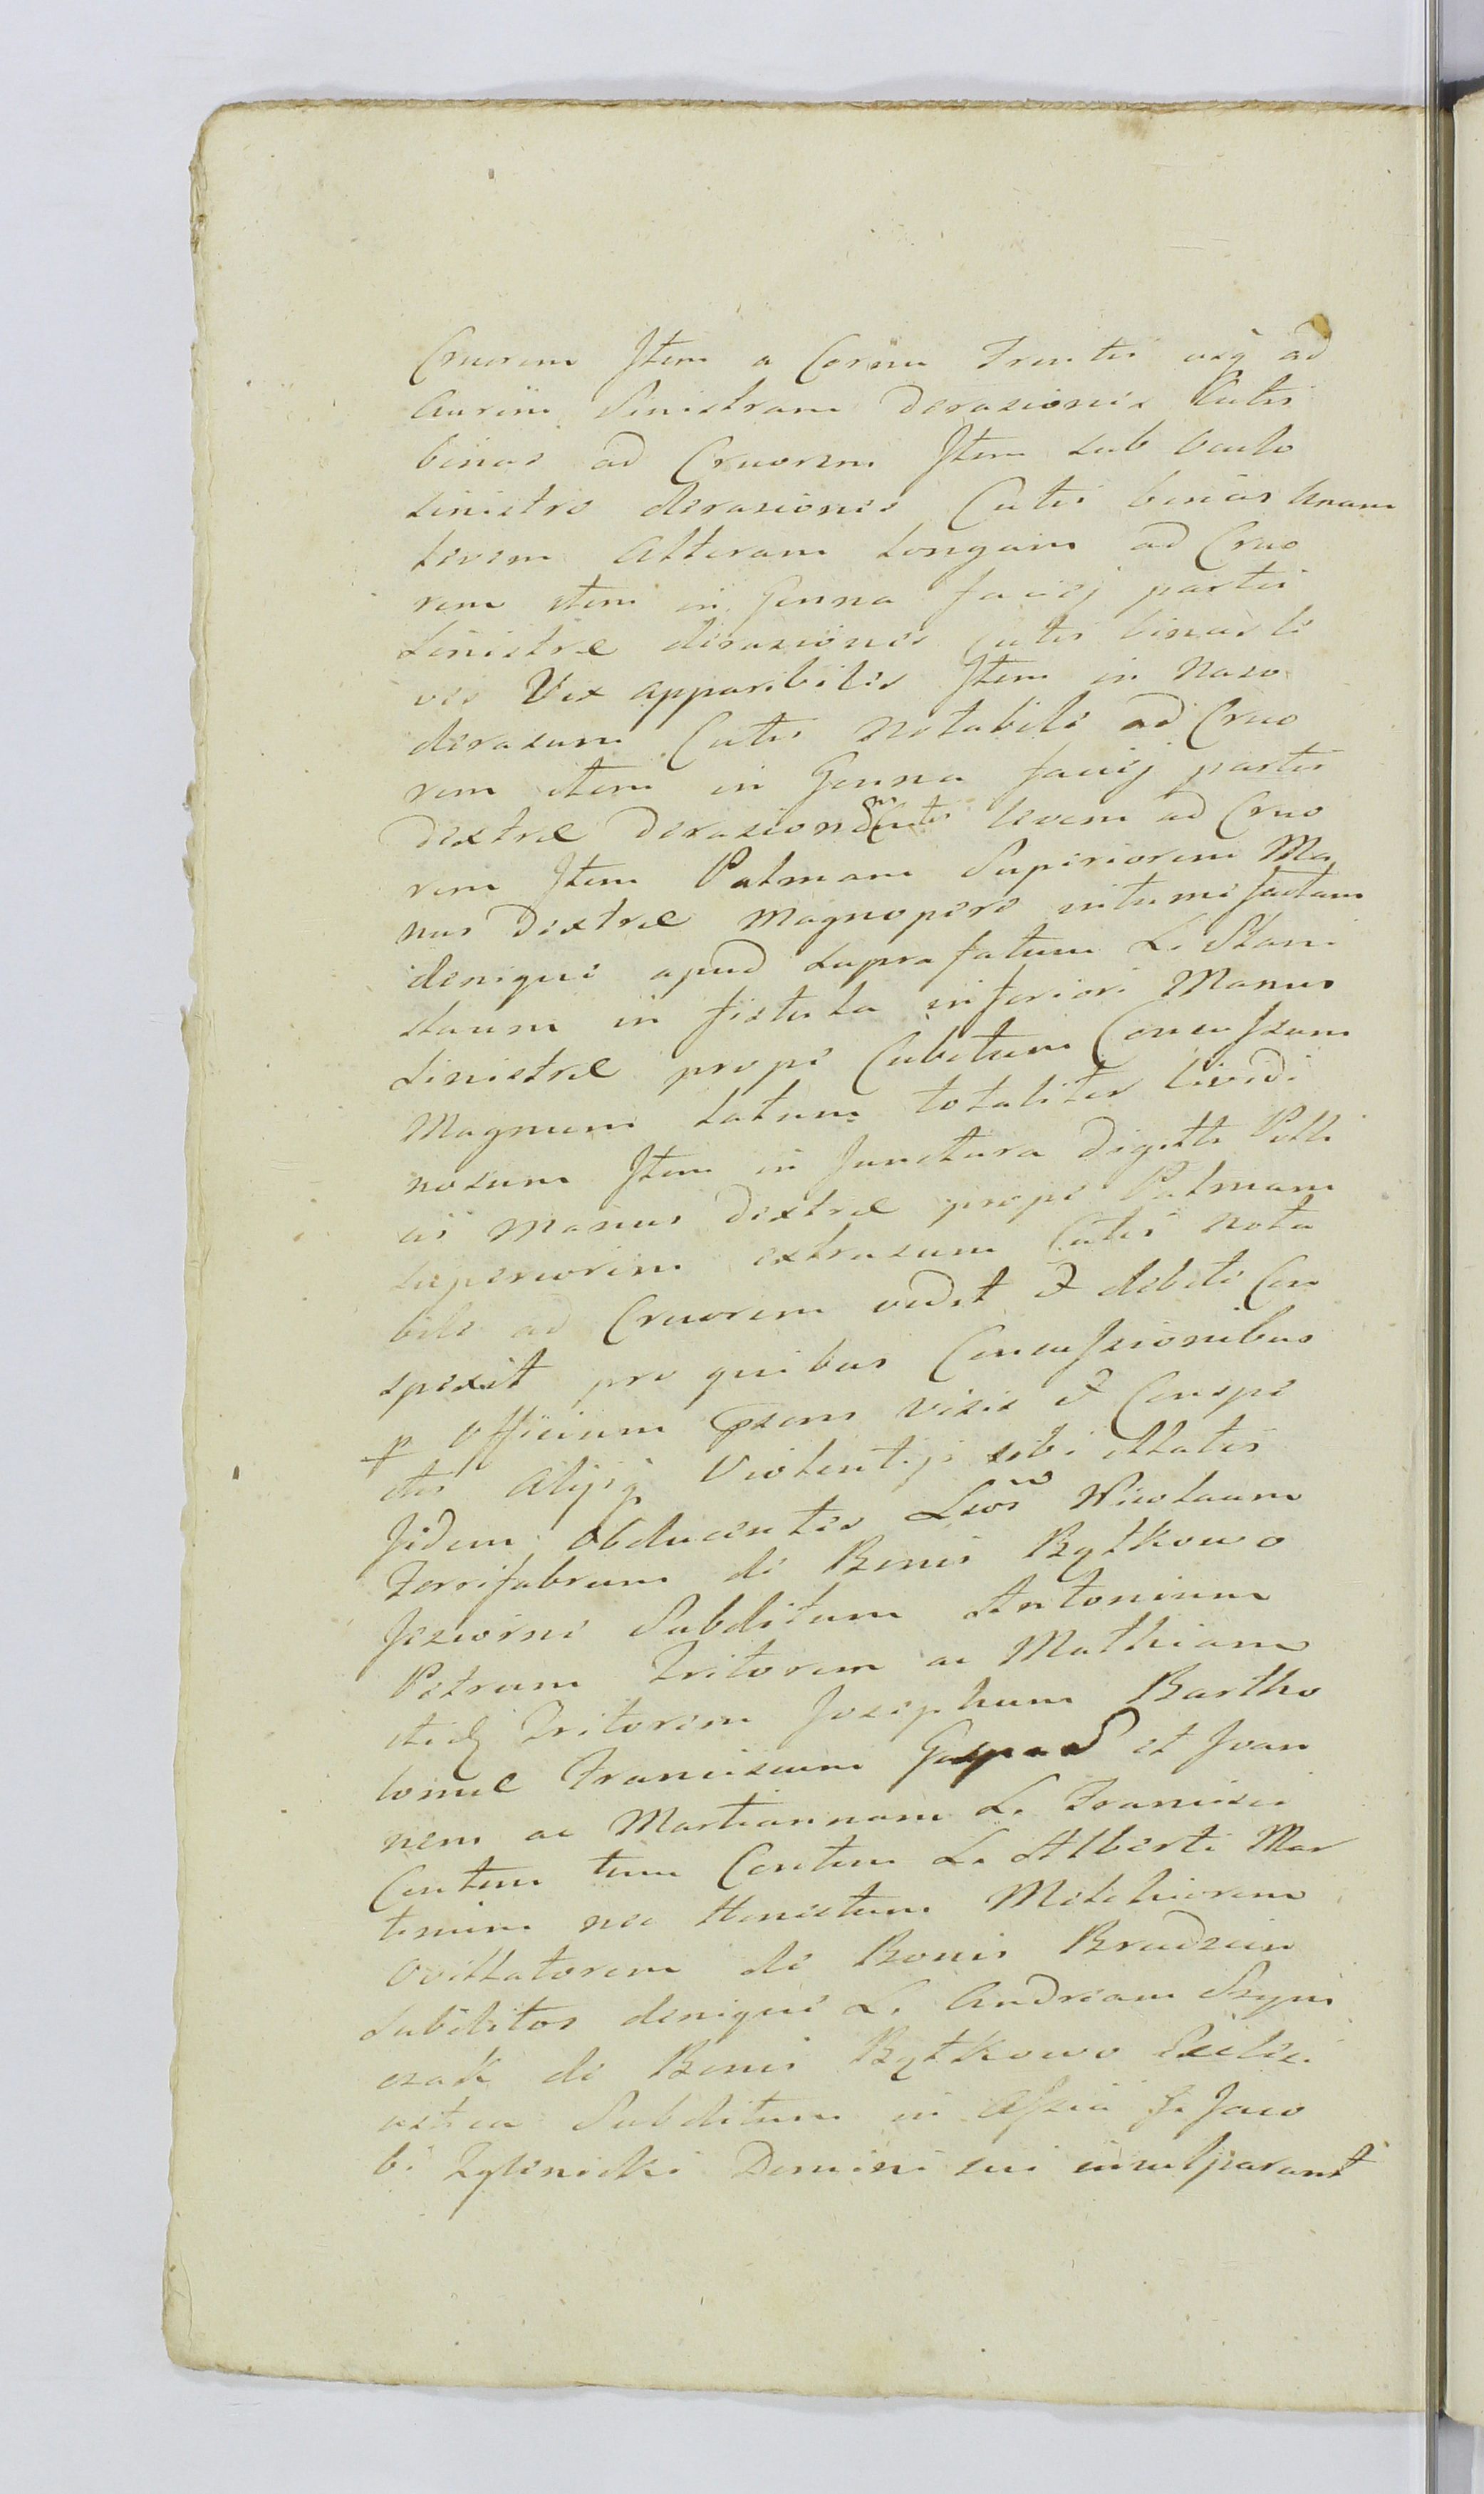 Cruorem Item a Cornu Frontis usq ad
Aurim Sinistram Derasiones Cutis
binas ad Cruorem Item sub Oculo
sinistro derasiones Cutis binas Unam
levem Alteram longam ad Cruo
rem item in Genna faciej partis
Sinistræ derasiones cutis binas le
ves Vix apparibiles Item in Naso
derasum Cutis notabile ad Cruo
rem item in Genna faciej partis
dextræ Derasionem Cutis levem ad Cruo
rem Item Palmam Superiorem Ma
nus Dextræ magnopere intumefactam
denique apud suprafatum L. Stani
slaum in fistula inferiori Manus
Sinistræ prope Cubitum Concussum
Magnum latum totaliter lividi
nosum Item in Junctura Digitti Polli
cis Manus Dextræ prope Palmam
superiorem extrasum Cutis nota
bile ad Cruorem vidit & debite Con
spexit pro quibus Concussionibus
p Officium Psens visis & Conspe
ctis Alijsq Violentijs sibi illatis
Fidem Obducentes Lsos Nicolaum
Ferrifabrum de Bonis Bytkowo
Jeziorne Subditum Antonium
Petrum Tritorem ac Mathiam
itid Tritorem Josephum Bartho
lomæ Franciscum Gaspar et Joan
nem ac Martiannam L. Francisci
Contem tum Contem L. Alberti Mar
tinum nec Honestum Melchiorem
Ovillatorem de Bonis Brudzin
Subditos denique L. Andream Szym
czak de Bonis Bytkowo Ecclesi
astica Subditum in Assia G. Jaco
bi Zglenicki Domini sui inculparunt